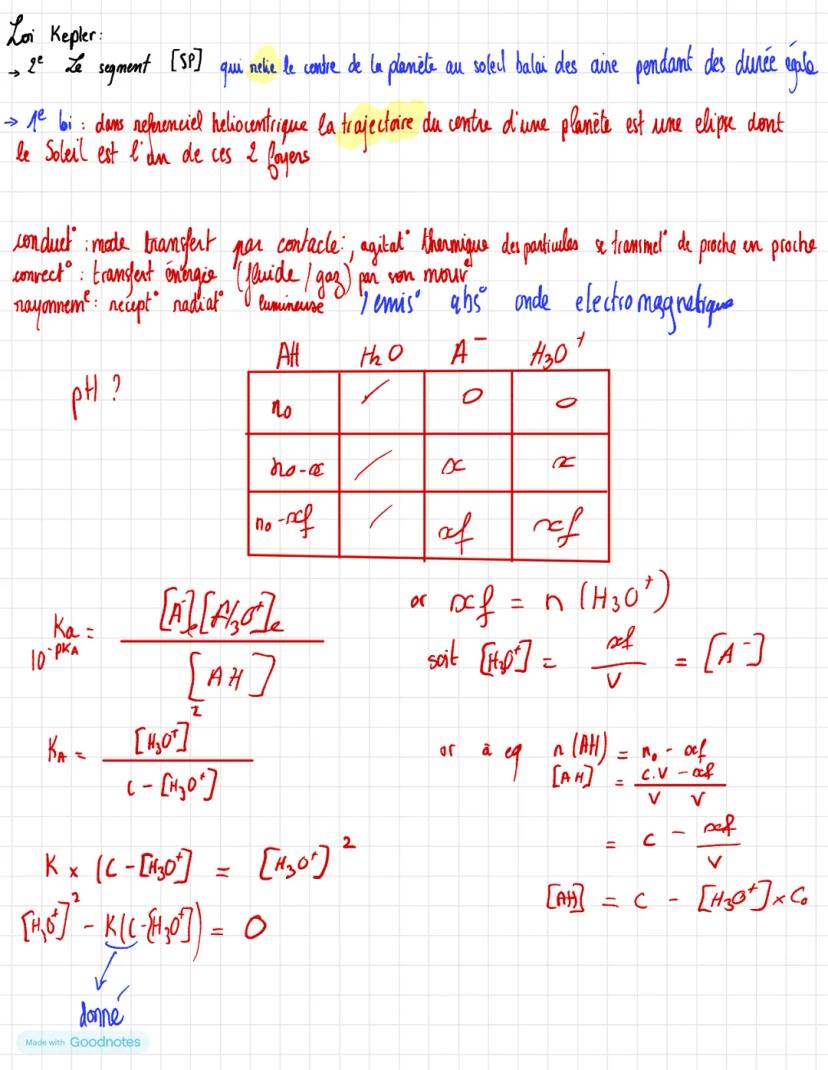 Loi Kepler:
→ 2e Le segment [SP] qui relie le centre de la planète au soleil balai des aire pendant des durée égale
→ 1e loi : dans referenciel heliocentrique la trajectoire du centre d'une planète est une elipse dont
le Soleil est l'un de ces 2 foyers
conduct° : mode transfert par contacte:, agitat° thermique des particules se transmet de proche en proche
convect° : transfert énergie (fluide / gaz) par son mouv
rayonnemt : recept° radiat° lumineuse / emis° abs° onde electromagnetique
AH H2O A⁻ H3O⁺
pH ?
n0 / 0 0
n0-x / x x
n0-xf / xf xf
Ka = [A⁻]e[H3O⁺]e / [AH]
10^-pKA
or xf = n(H3O⁺)
soit [H3O⁺] = xf / V = [A⁻]
KA = [H3O⁺]² / C-[H3O⁺]
or à eq n(AH) = n0 - xf
[AH] = C.V - xf / V V
= C - xf / V
K x (C-[H3O⁺] = [H3O⁺]²
[AH] = C - [H3O⁺] x C0
[H3O⁺]² - K(C-[H3O⁺]) = 0
donné
Made with Goodnotes